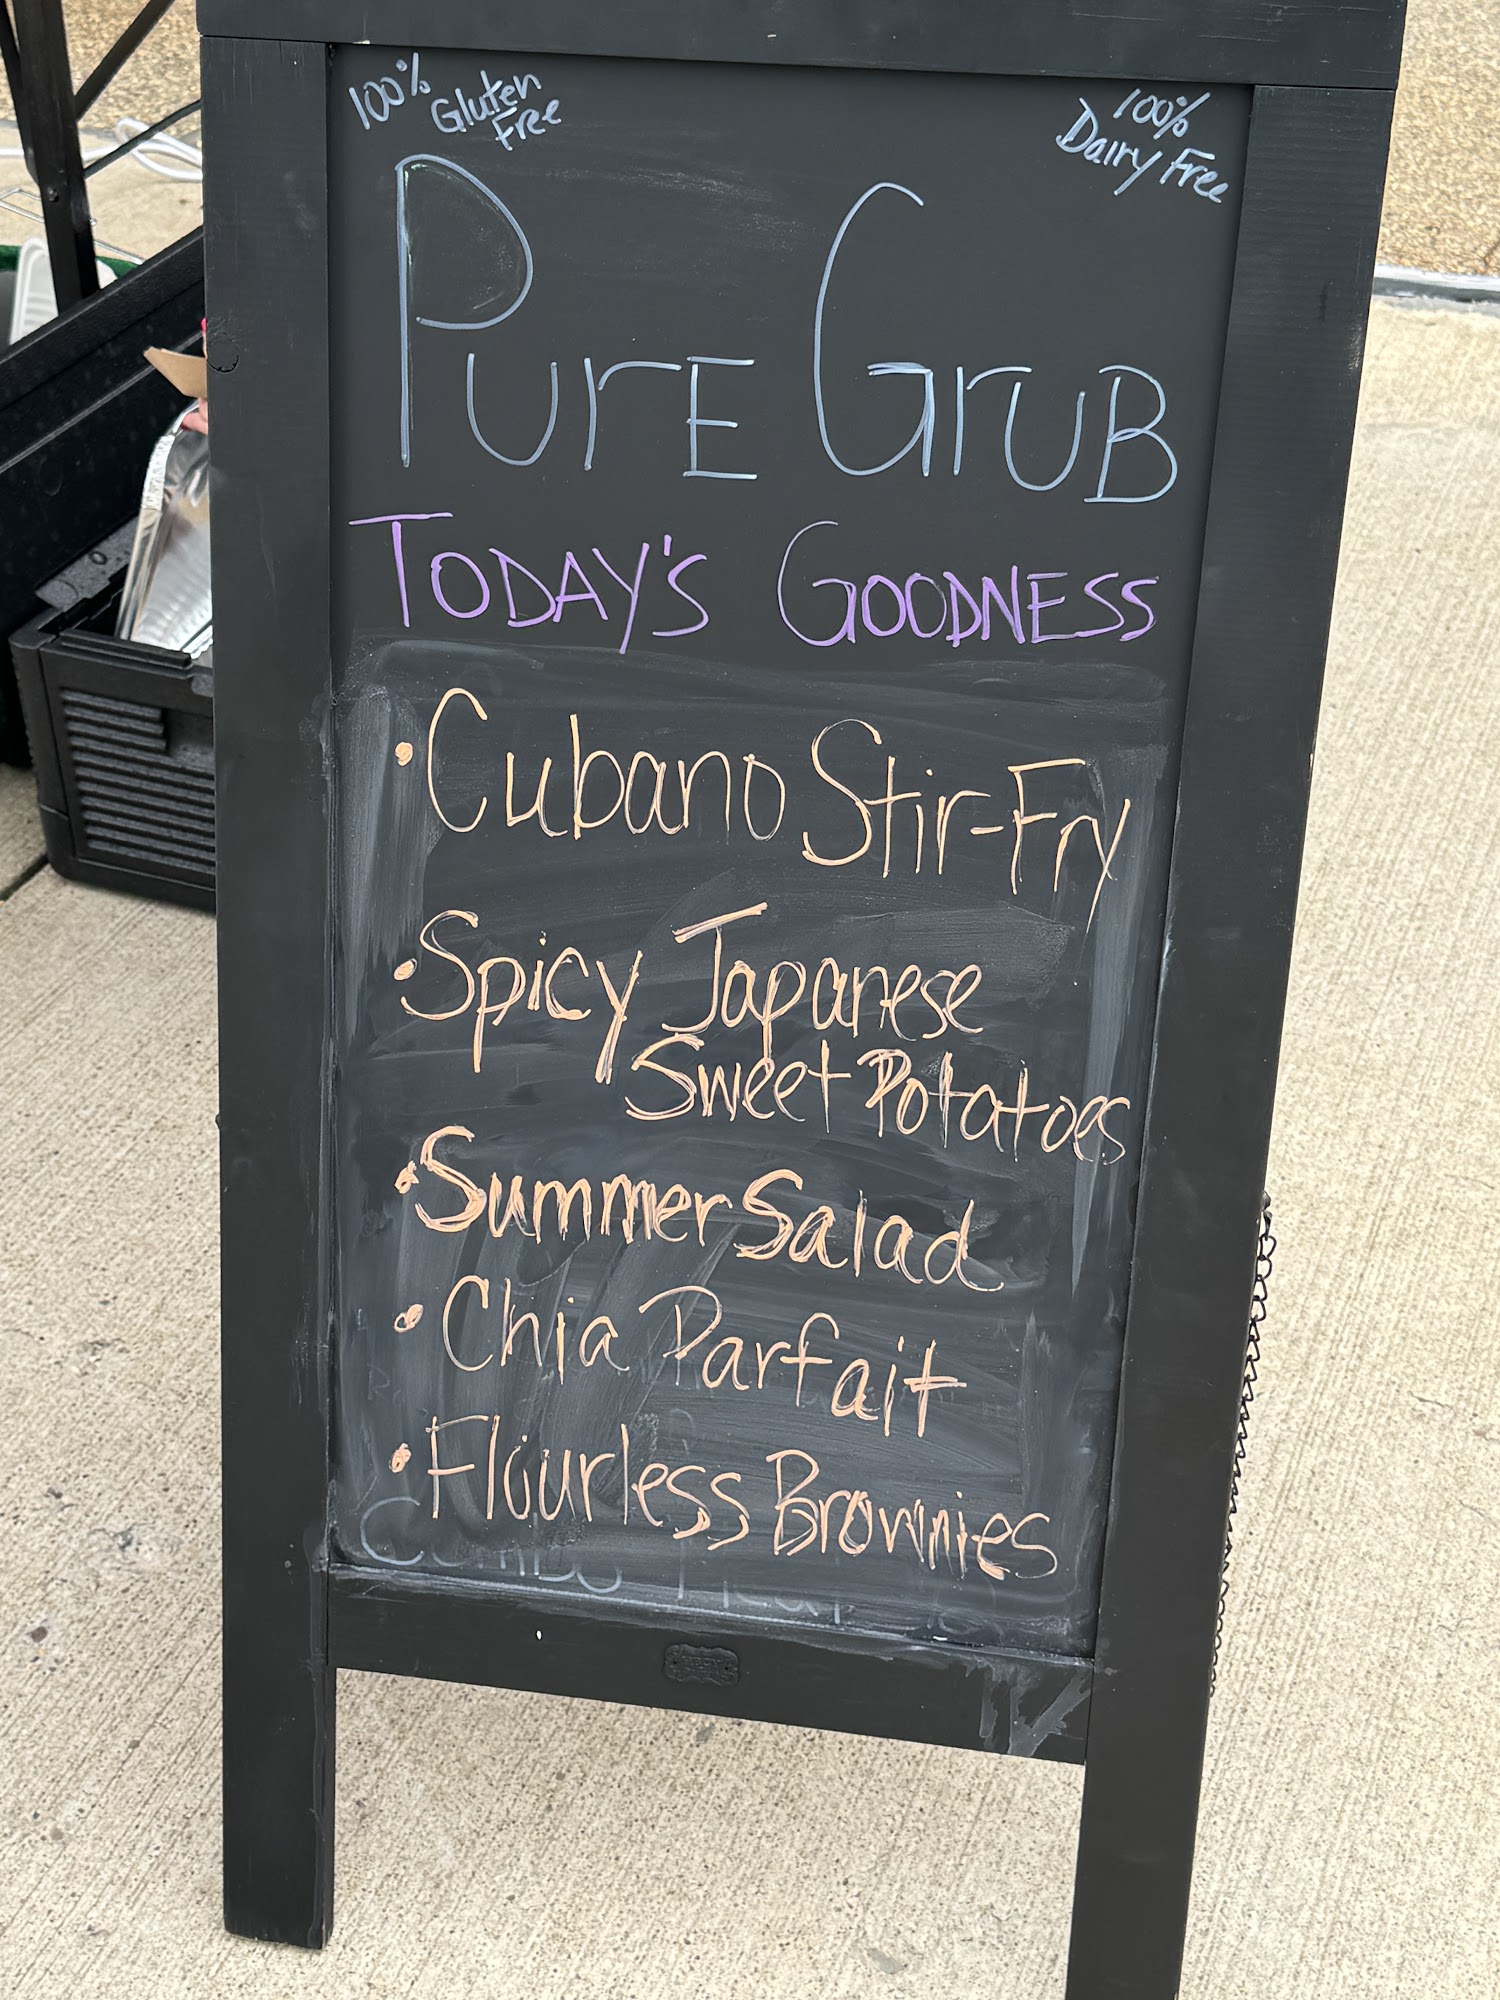 100% Gluten Free
100% Dairy Free
PurE GruB
TODAY'S GOODNESS
• Cubano Stir-Fry
• Spicy Japanese
Sweet Potatoes
• Summer Salad
• Chia Parfait
• Flourless Brownies